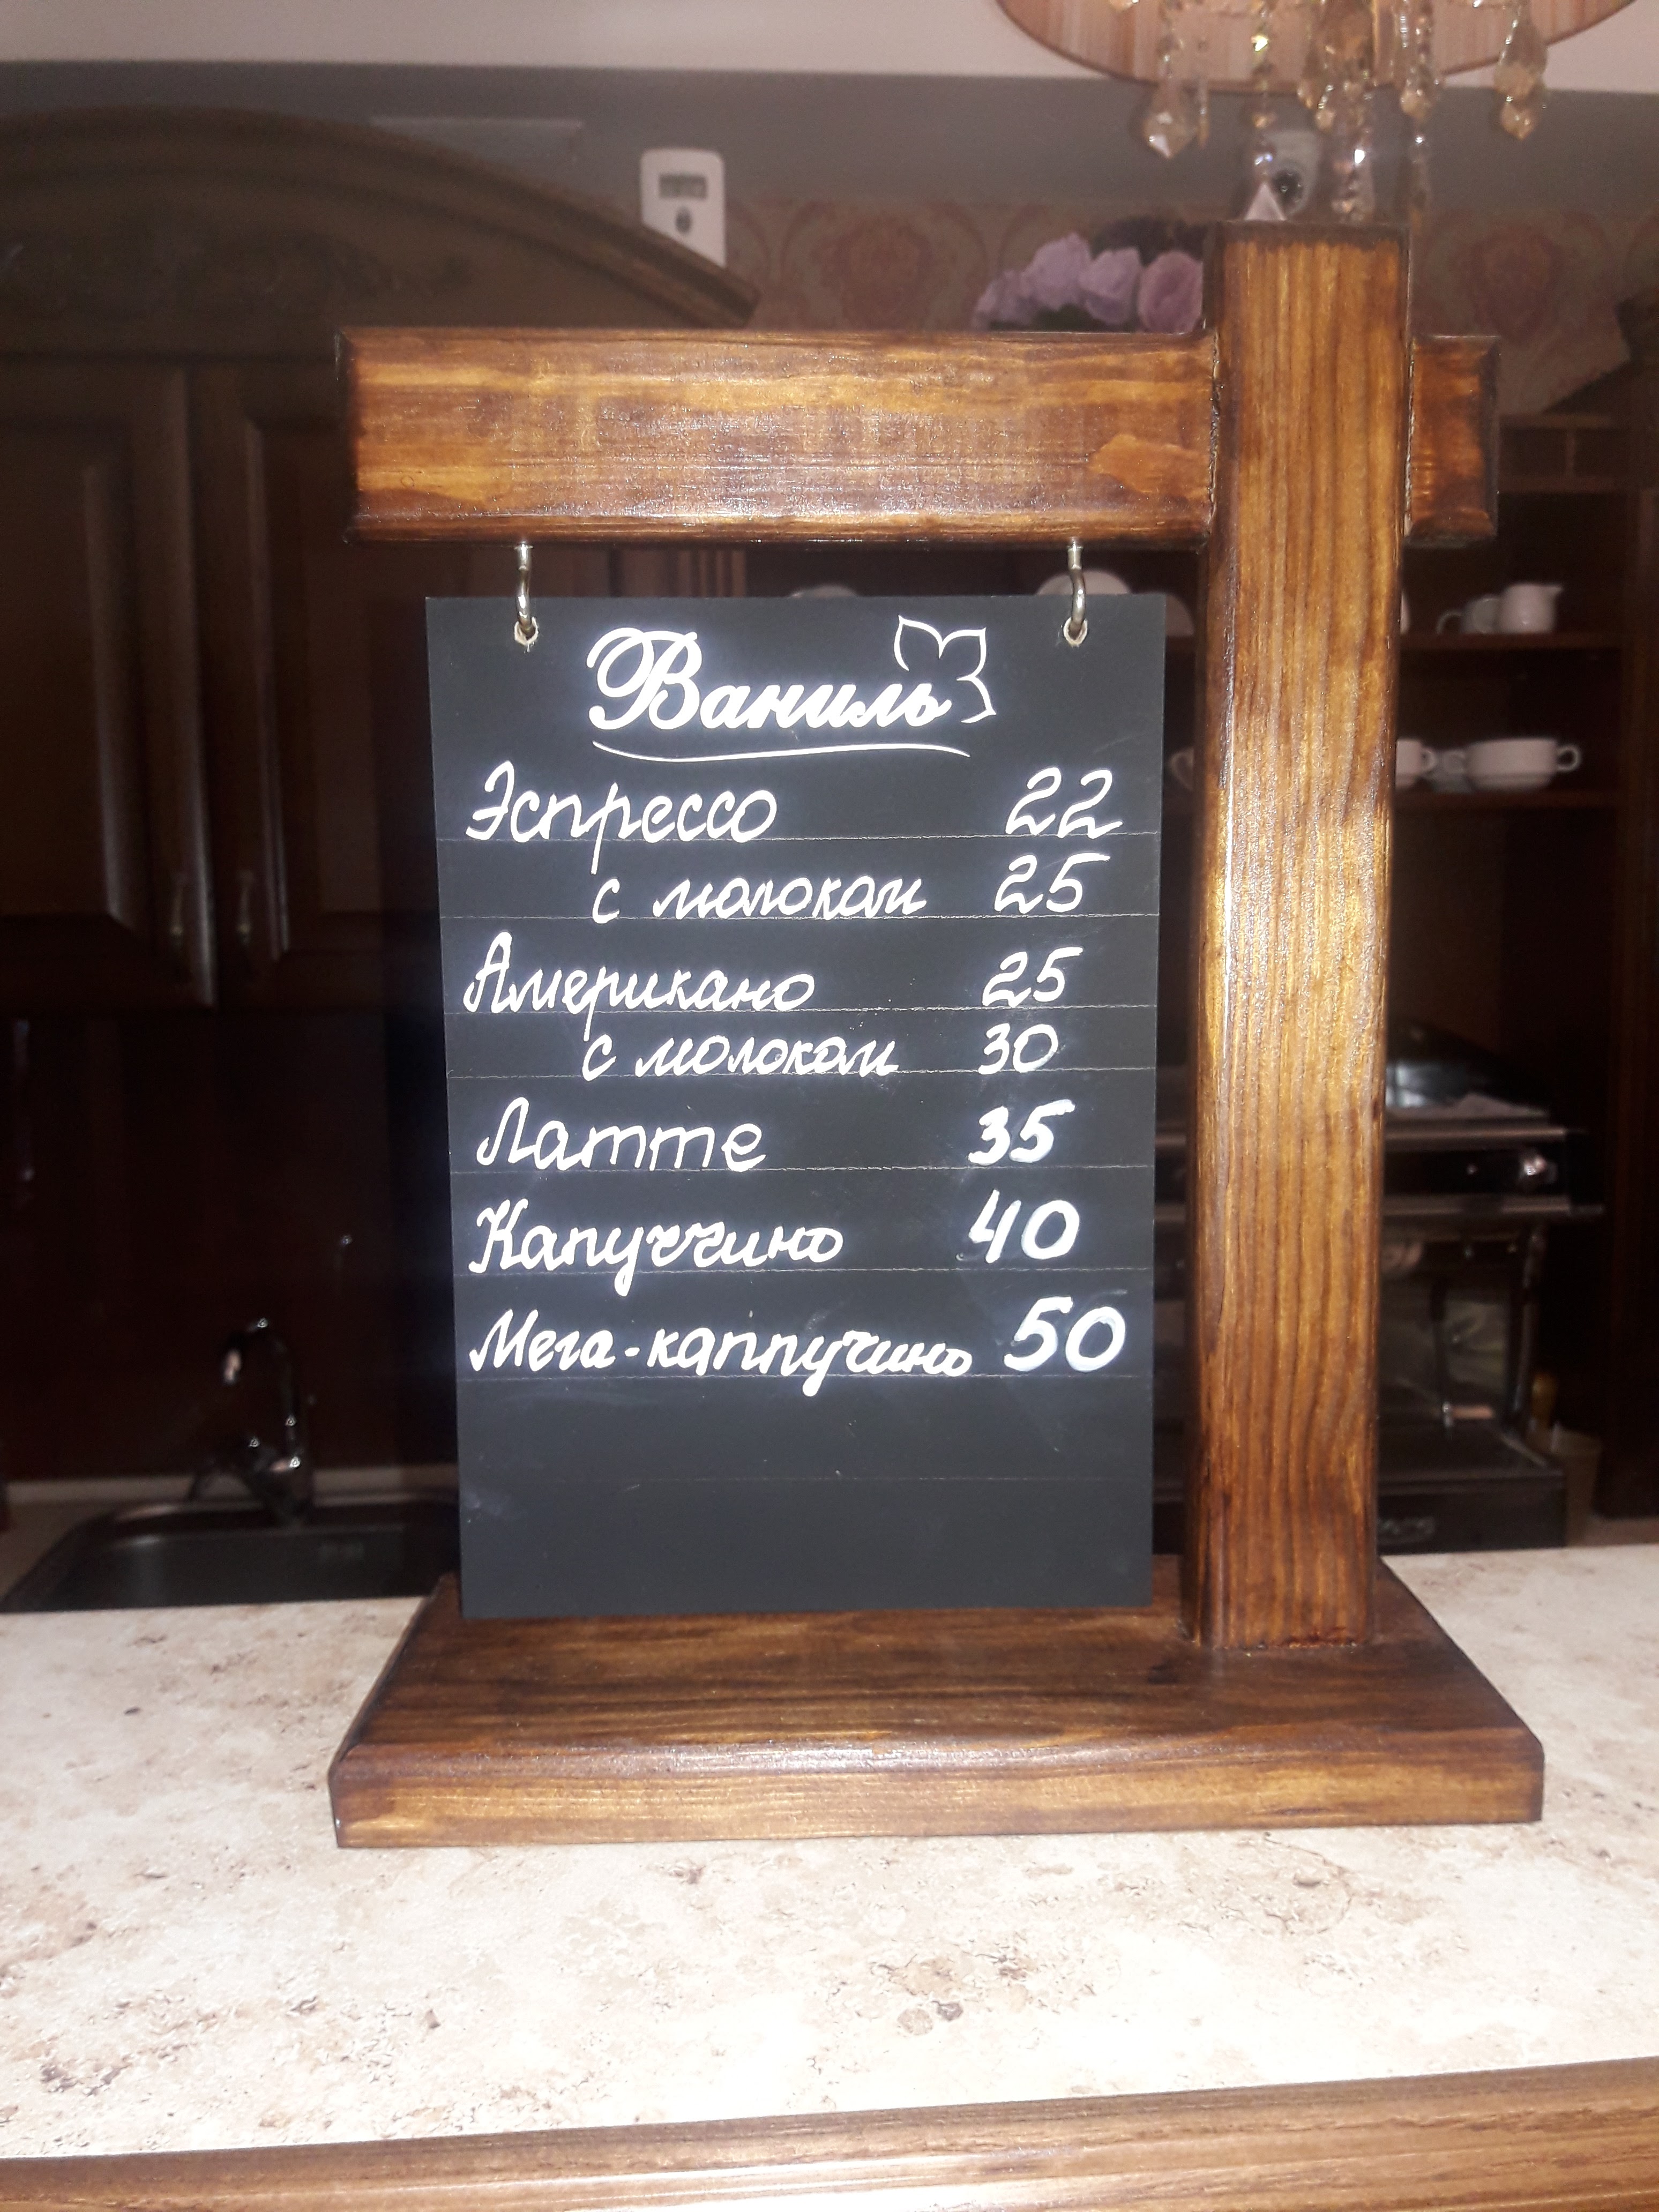 Ваниль
Эспрессо 22
с молоком 25
Американо 25
с молоком 30
Латте 35
Капуччино 40
Мега-каппучино 50